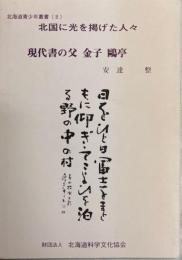 北海道青少年叢書(2)
北国に光を掲げた人々
現代書の父 金子 鷗亭
安達 整
日をひと日富士をまと
もに仰ぎ来てこよひを泊
る野の中の村
財団法人 北海道科学文化協会